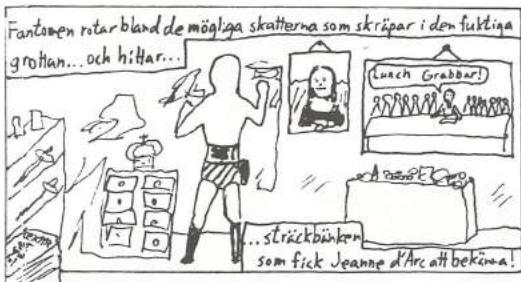 Fantomen rotar bland de mögliga skatterna som skräpar i den fuktiga
grottan... och hittar...
Lunch Grabbar!
...sträckbänken
som fick Jeanne d'Arc att bekänna!